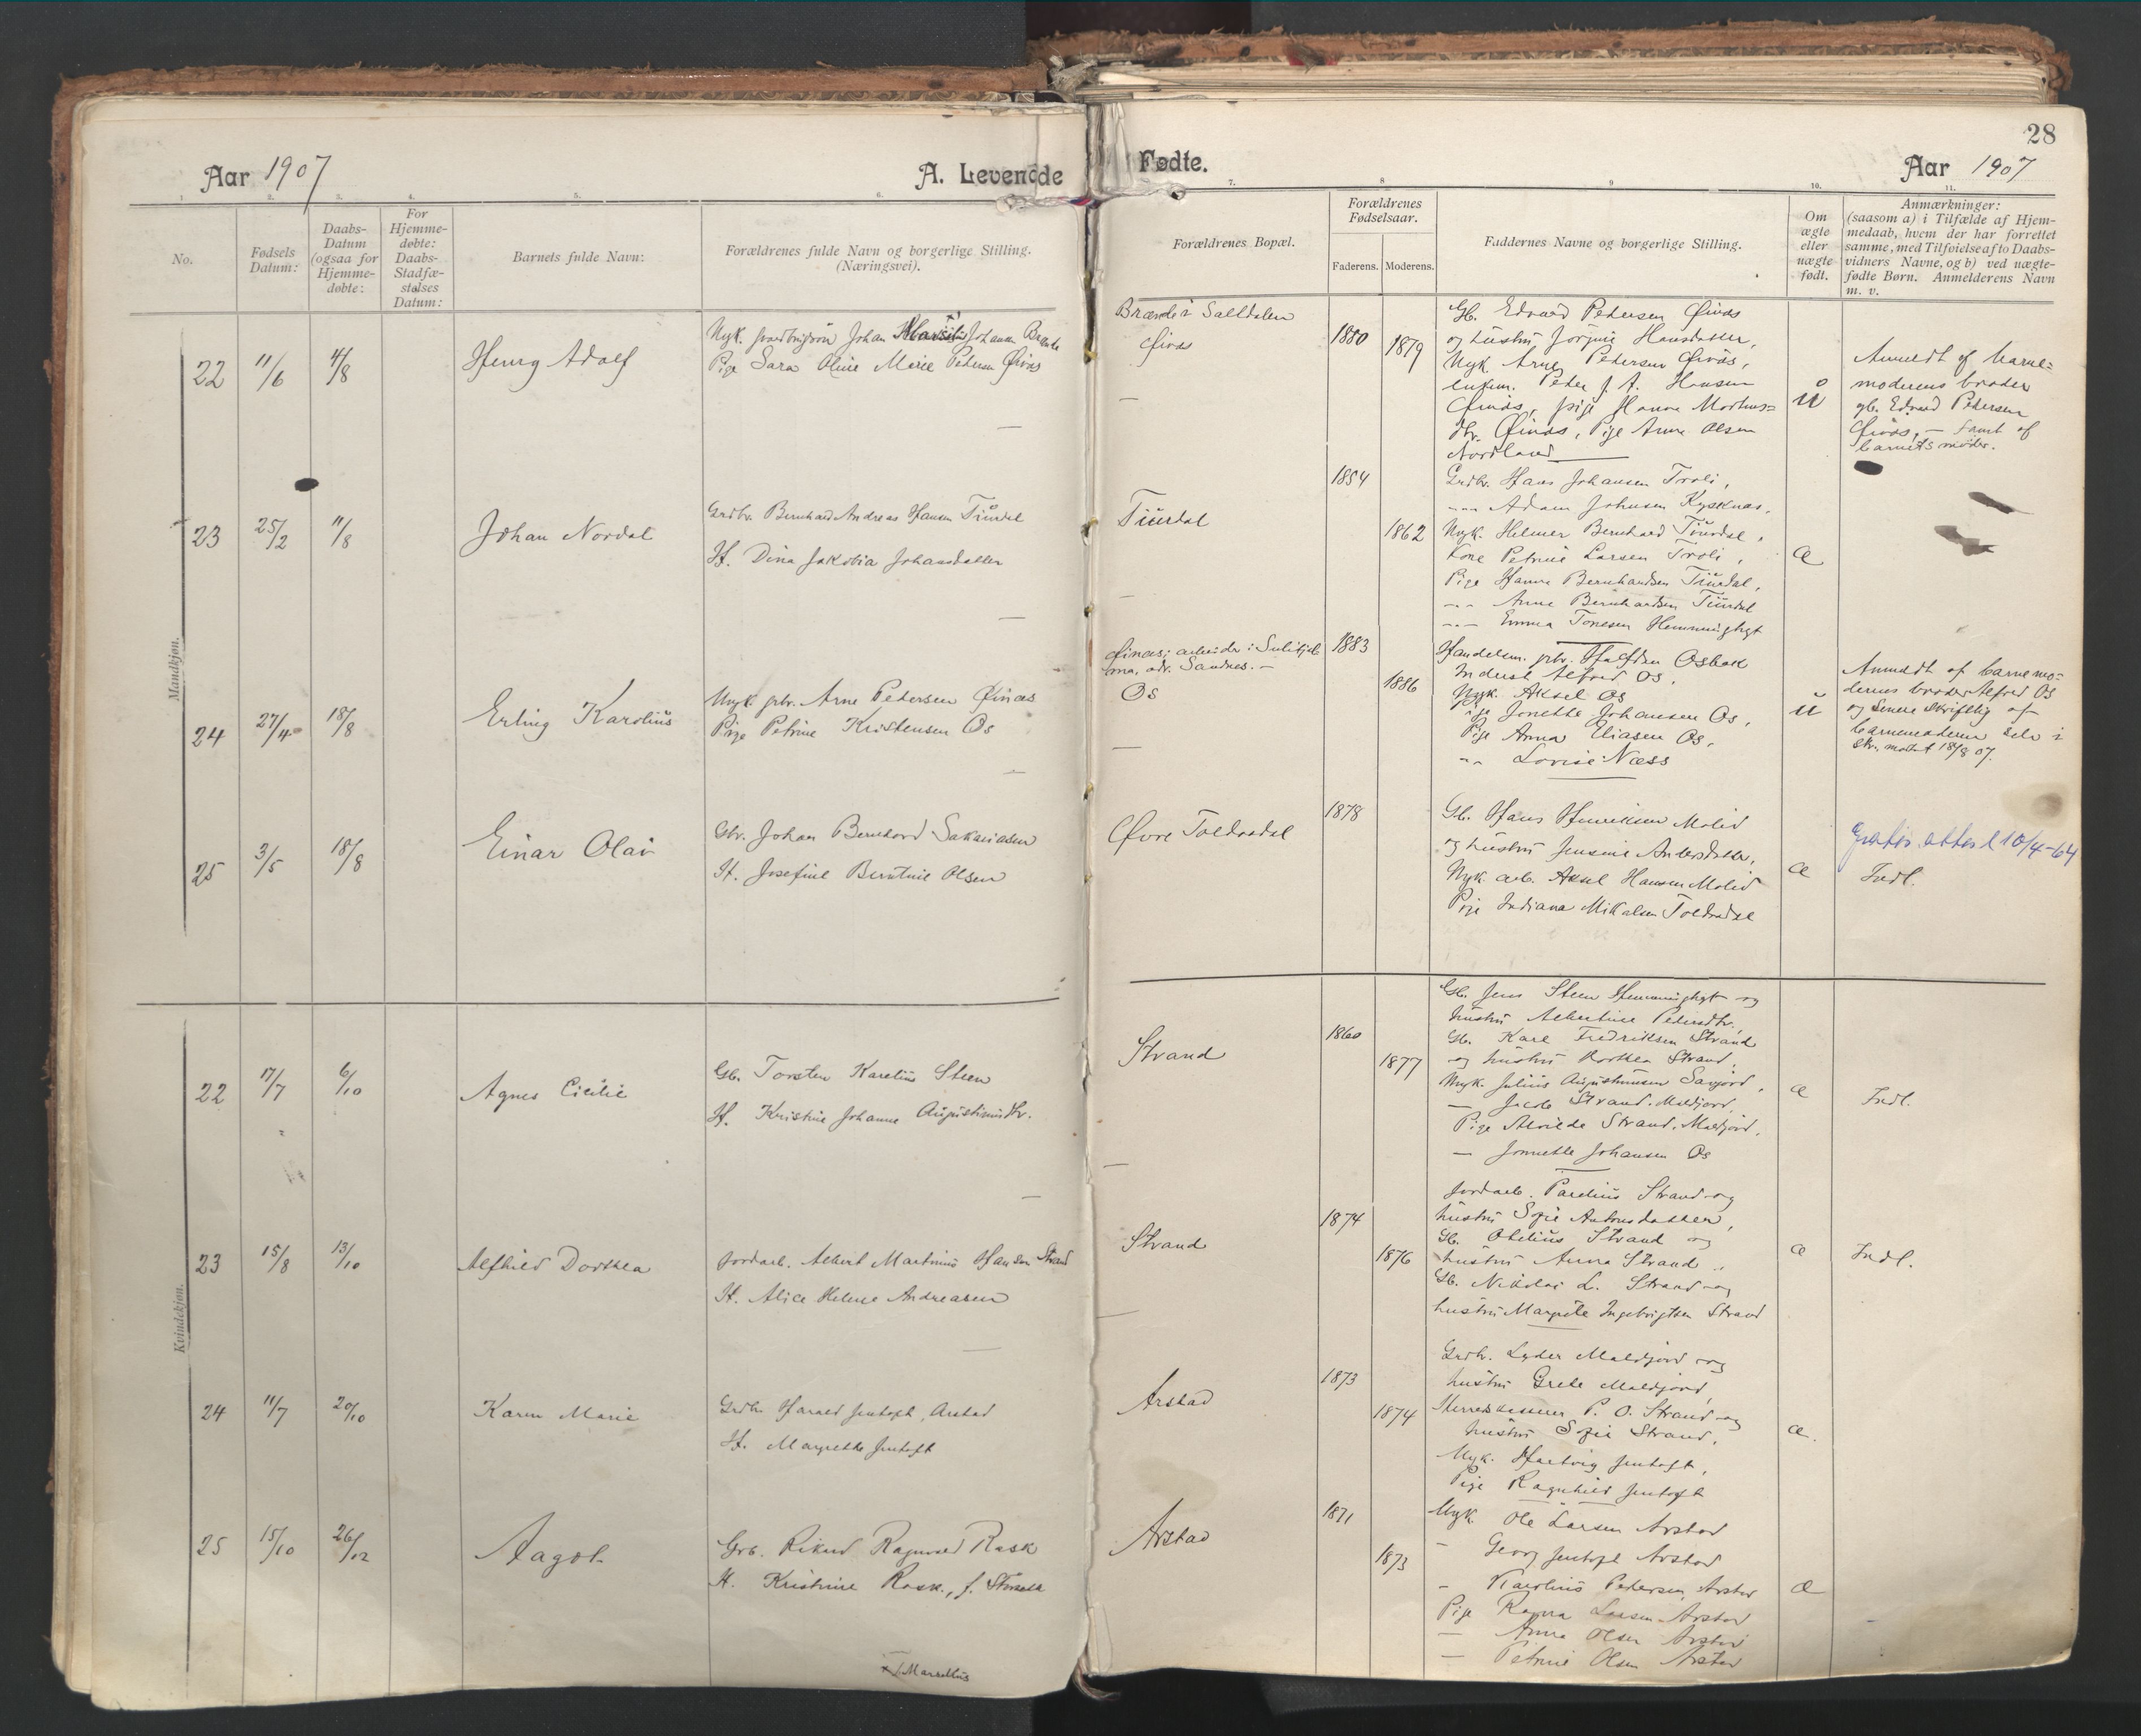 28
Aar 1907
A. Levende
Fødte.
Aar 1907
1. 2. 3. 4. 5. 6. 7. 8. 9. 10. 11.
No.
Fødsels
Datum:
Daabs-
Datum
(ogsaa for
Hjemme-
døbte:
For
Hjemme-
døbte:
Daabs-
Stadfæ-
stelses
Datum:
Barnets fulde Navn:
Forældrenes fulde Navn og borgerlige Stilling.
(Næringsvei).
Forældrenes Bopæl.
Forældrenes
Fødselsaar.
Faderens. Moderens.
Faddernes Navne og borgerlige Stilling.
Om
ægte
eller
uægte
født.
Anmærkninger:
(saasom a) i Tilfælde af Hjem-
medaab, hvem der har forrettet
samme, med Tilføielse af to Daabs-
vidners Navne, og b) ved uægte-
fødte Børn. Anmelderens Navn
m. v.
Mandkjøn.
22 11/6 4/8
Henry Adolf
Ungk. Johan Johansen
Pige Sara Oline Marie Petersen Øinæs
Brænde i Saltdalen
Øinæs
1880
1879
Gb. Edvard Petersen Øinæs
og hustru Jørgine Hansdatter,
Ungk. Arne Petersen Øinæs,
Peder J. A. Hansen
Øinæs, pige Hanna
dtr. Øinæs, Pige Anna Olsen
Nordland
u
Anmeldt af barne-
moderens broder
gb. Edvard Petersen
Øinæs, – samt af
barnets moder.
23 25/2 11/8
Johan Nordal
Grdbr. Bernhard Andreas Hansen
H. Dina Jakobia Johansdatter
1854
1862
Grdbr. Hans Johansen Troli,
Adam Johnsen
Ungk. Helmer Bernhard
Kone Petrine Larsen Troli,
Pige Hanna Bernhardsen
Anna Bernhardsen
Emma Tonesen
æ
24 27/4 18/8
Erling Karolius
Ungk. gbr. Arne Petersen Øinæs
Pige Petrine Kristensen Os
Øinæs; arbeider i Sulitjel-
ma, adr. Sandnes. –
Os
1883
1886
Handelsm. gbr. Halfdan Osbak
Indust Alfred Os,
Ungk. Aksel Os
Pige Jonette Johansen Os,
Pige Anna Eliasen Os,
Lovise Næss
u
Anmeldt af barnemo-
derens broder Alfred Os
og senere skriftlig af
barnemoderen selv i
skr. modt 18/8 07.
25 3/5 18/8
Einar Olai
Gbr. Johan Bernhard Sakariasen
H. Josefine Berntine Olsen
Øvre Toldaadal
1878
Gb. Hans Henriksen Molid
og hustru Jensine Andersdatter,
Ungk. arb. Aksel Hansen Molid
Pige Indiana Mikalsen Toldaadal
æ
Gratis attest 10/4-64
Indl.
Kvindekjøn.
22 17/7 6/10
Agnes Cicilie
Gb. Torsten Karelius Steen
H. Kristine Johanne Augustinusdtr.
Strand
1860
1877
Gb. Jens Steen og
hustru Albertine Pedersdtr.,
Gb. Karl Fredriksen Strand
og hustru Dorthea Strand,
Ungk. Julius Augustinussen
Jacob Strand. Maldjord,
Pige Alvilde Strand. Maldjord,
– Jonnette Johansen Os
æ
Indl.
23 15/8 13/10
Alfhild Dorthea
Jordarb. Albert Martinus Hansen Strand
H. Alice Helene Andreasen
Strand
1874
1876
Jordarb. Parelius Strand og
hustru Sofie Antonsdatter,
Gb. Otelius Strand og
hustru Anna Strand,
Gb. Nikolai L. Strand og
hustru Margrete Ingebrigtsen Strand
æ
Indl.
24 11/7 20/10
Karen Marie
Grdbr. Harald Jentoft, Arstad
H. Margrethe Jentoft
Arstad
1873
1874
Grdbr. Lyder Maldjord og
hustru Grete Maldjord,
Herredskasserer P. O. Strand og
hustru Sofie Strand,
Ungk. Hartvig Jentoft,
Pige Ragnhild Jentoft
æ.
25 15/10 26/12
Aagot
Grb. Rikard Ragnvald Rask
H. Kristine Rask, f.
Arstad
1871
1873
Ungk. Ole Larsen Arstad
– Georg Jentoft Arstad
– Karolius Pedersen Arstad
Pige Ragna Larsen Arstad
– Anna Olsen Arstad
– Petrine Olsen Arstad
æ
× Marselius